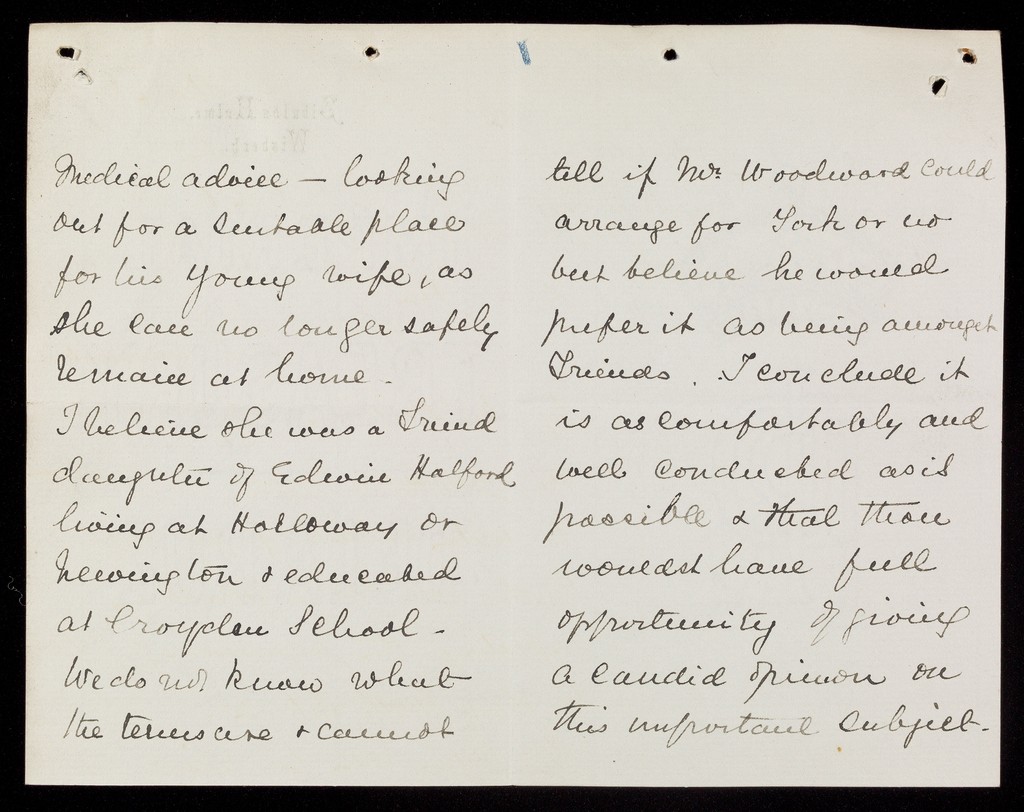 Medical advice — looking
out for a suitable place
for his young wife, as
she can no longer safely
remain at home.
I believe she was a Friend
daughter of Edwin Halford
living at Holloway or
Newington & educated
at Croyden School -
We do not know what
the terms are & cannot
tell if Mr. Woodward could
arrange for York or no
but believe he would
prefer it as being amongst
Friends. I conclude it
is as comfortably and
well conducted as is
possible & that thou
wouldst have full
opportunity of giving
a candid opinion on
this important subject.